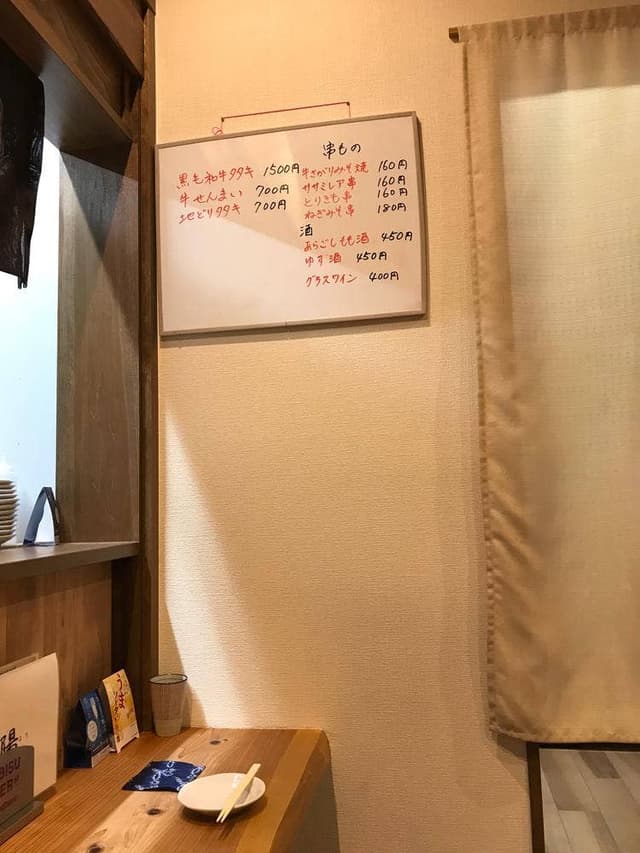 黒毛和牛タタキ 1500円
牛せんまい 700円
地どりタタキ 700円
串もの
牛さがりみそ焼 160円
ササミレア串 160円
とりきも串 160円
ねぎみそ串 180円
酒
あらごしもも酒 450円
ゆず酒 450円
グラスワイン 400円
うま
陽
BISU